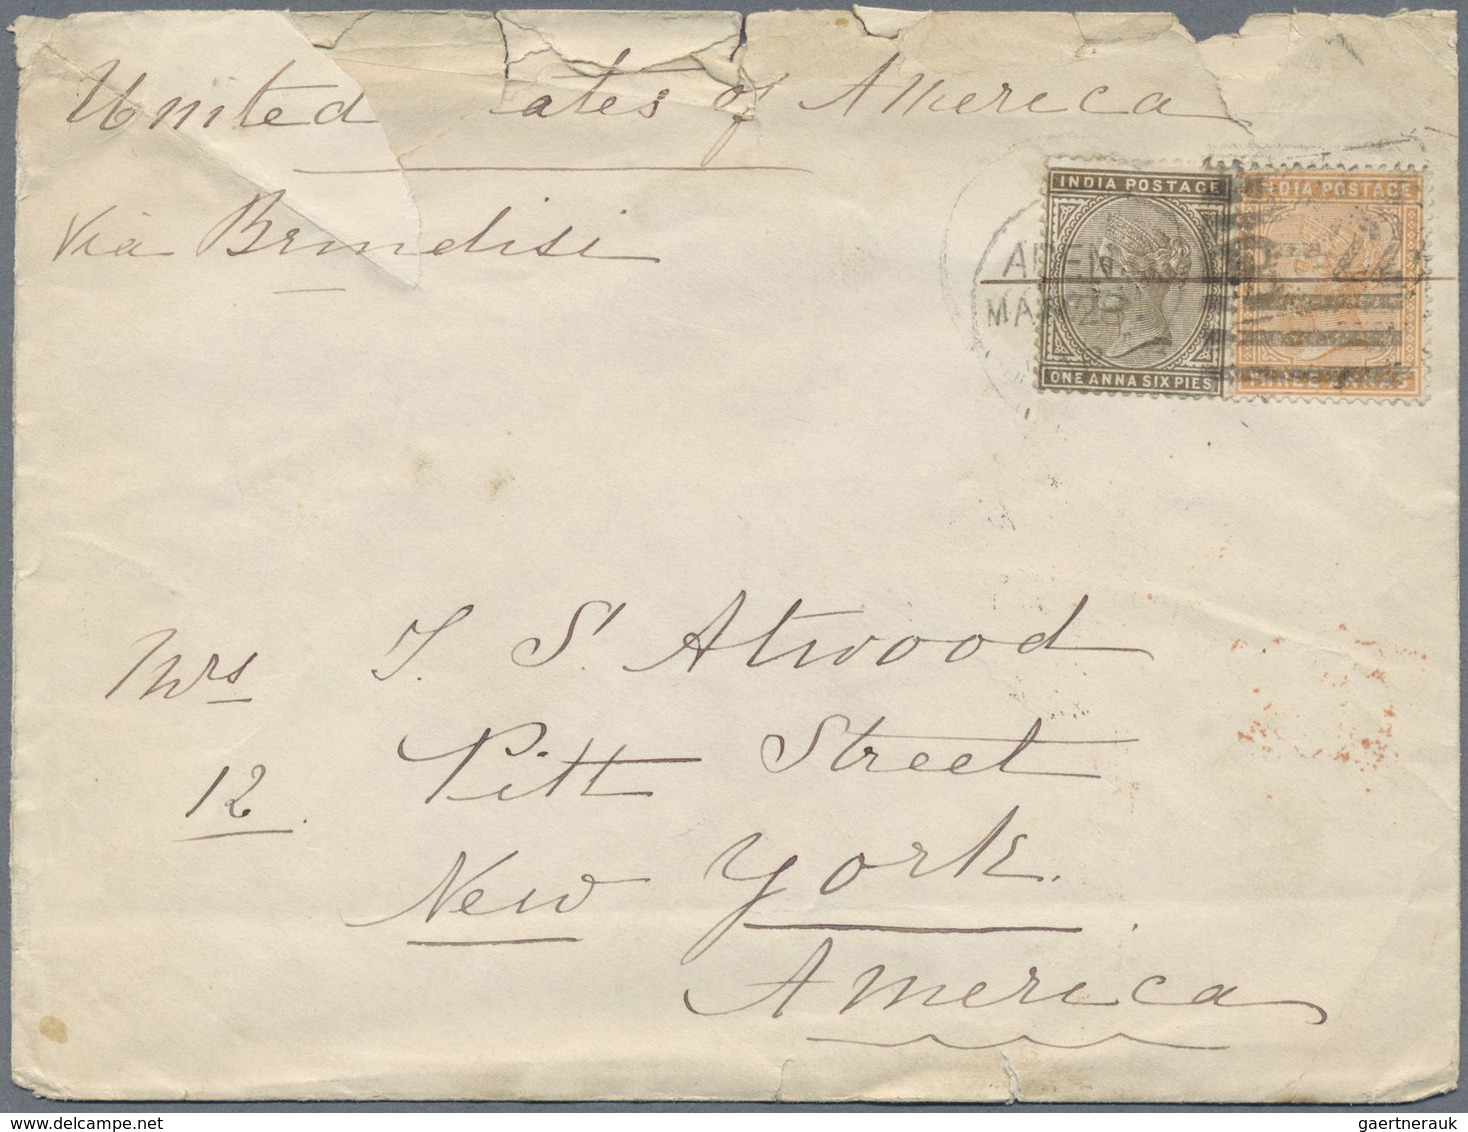 United ates of America
Via Brindisi
INDIA POSTAGE
ONE ANNA SIX PIES
INDIA POSTAGE
THREE
ADEN
MAR 28
Mrs T. S. Atwood
12. Pitt Street
New York.
America
gaertnerauk